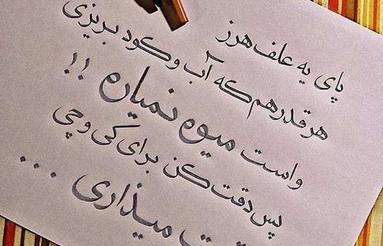 پای یه علف هرز
هر قدر هم که آب و کود بریزی
واست میوه نمیاره !!
پس دقت کن برای کی و چی
میذاری ...